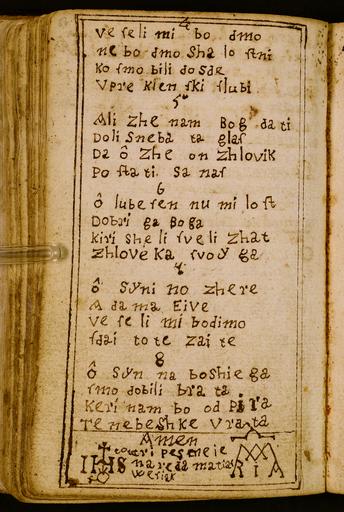 4
Ve ſe li mi bo dmo
ne bo dmo Sha lo ſtni
Ko ſmo bili do sde
Vpre klen ſki ſlubi
5
Ali zhe nam Bog da ti
Doli Sneba ta glaſ
Da ô zhe on zhlovik
Po ſta ti Sa naſ
6
ô lube ſen nu mi lo ſt
Dobri ga Boga
Kiri she li ſve li zhat
zhlove Ka ſvoÿ ga
7
ô Sÿni no zhere
A da ma Eive
Ve ſe li mi bodimo
ſdai to te zai te
8
ô Sÿn na boshie ga
ſmo dobili bra ta
Keri nam bo od pi ra
Te nebeshke Vrata
Amen
peſmeie
IHS na reda matiaſ MARIA